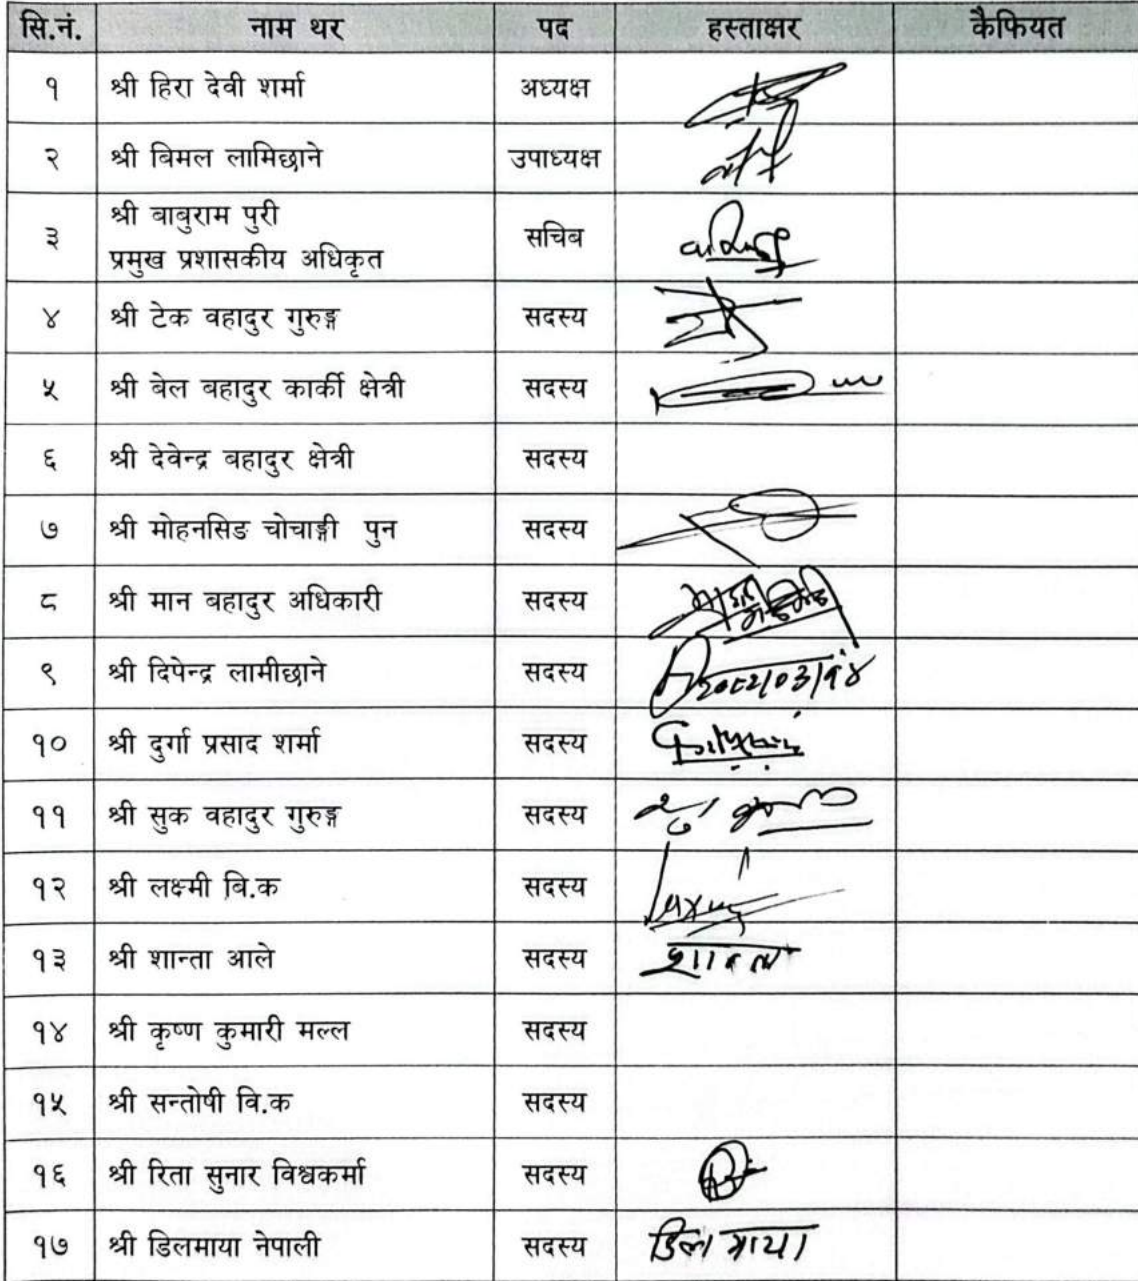 सि.नं. नाम थर पद हस्ताक्षर कैफियत
१ श्री हिरा देवी शर्मा अध्यक्ष
२ श्री बिमल लामिछाने उपाध्यक्ष
३ श्री बाबुराम पुरी सचिब
प्रमुख प्रशासकीय अधिकृत
४ श्री टेक वहादुर गुरुङ्ग सदस्य
५ श्री बेल बहादुर कार्की क्षेत्री सदस्य
६ श्री देवेन्द्र बहादुर क्षेत्री सदस्य
७ श्री मोहनसिङ चोचाङ्गी पुन सदस्य
८ श्री मान बहादुर अधिकारी सदस्य
९ श्री दिपेन्द्र लामीछाने सदस्य २०८२/०३/१४
१० श्री दुर्गा प्रसाद शर्मा सदस्य
११ श्री सुक वहादुर गुरुङ्ग सदस्य
१२ श्री लक्ष्मी बि.क सदस्य
१३ श्री शान्ता आले सदस्य शान्ता
१४ श्री कृष्ण कुमारी मल्ल सदस्य
१५ श्री सन्तोषी वि.क सदस्य
१६ श्री रिता सुनार विश्वकर्मा सदस्य
१७ श्री डिलमाया नेपाली सदस्य डिल माया